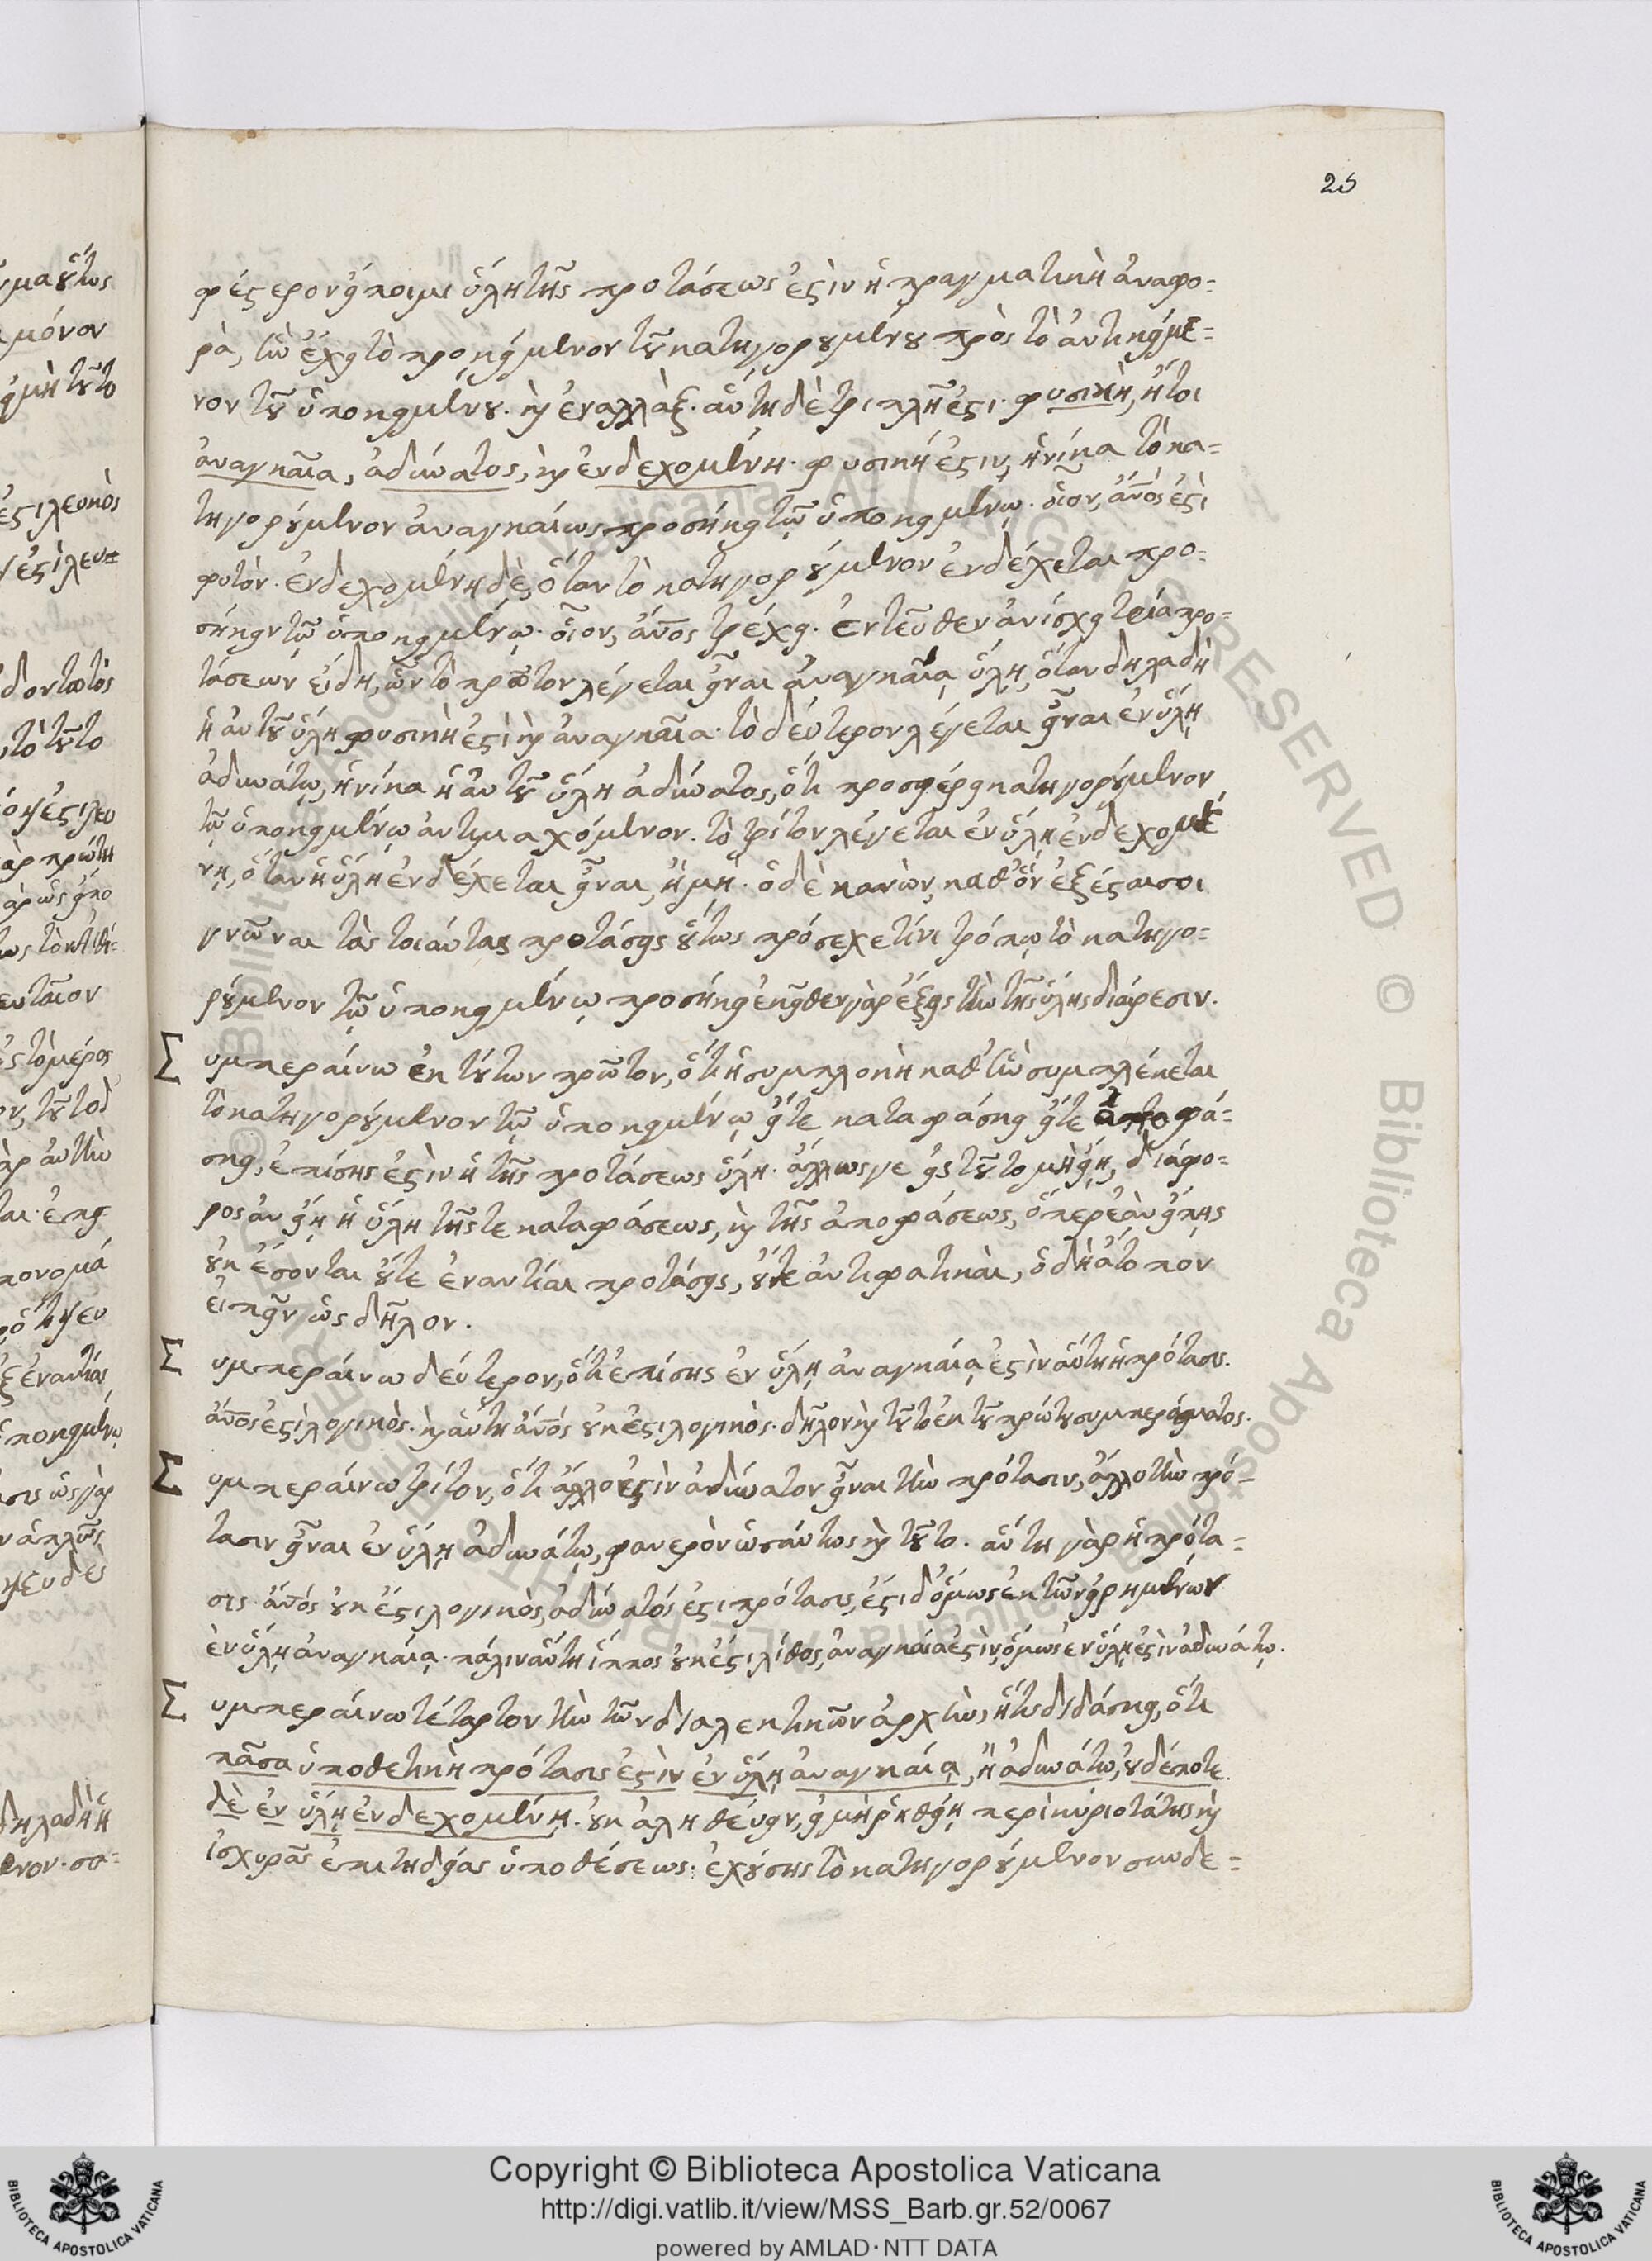 25
φέςερον εἴποιμι ὕλη τῆς προτάσεως ἐςὶν ἡ πραγματικὴ ἀναφο=
ρὰ, ἣν ἔχει τὸ προκείμενον τοῦ κατηγορουμένου πρὸς τὸ ἀντικείμε=
νον τοῦ ὑποκειμένου. καὶ ἐναλλὰξ. αὕτη δὲ τριπλῆ ἐςι. φυσικὴ, ἤτοι
ἀναγκαῖα, ἀδύνατος, καὶ ἐνδεχομένη. φυσική ἐςιν, ἡνίκα τὸ κα=
τηγορούμενον ἀναγκαίως προσήκει τῷ ὑποκειμένῳ. οἷον, ἄνος ἐςὶ
φυτὸν. ἐνδεχομένη δὲ, ὅταν τὸ κατηγορούμενον ἐνδέχεται προ=
σήκειν τῷ ὑποκειμένῳ. οἷον, ἄνος τρέχει. ἐντεῦθεν ἀνίσχει τρία προ=
τάσεων εἴδη, ὧν τὸ πρῶτον λέγεται εἶναι ἀναγκαῖα ὕλῃ, ὅταν δηλαδὴ
ἡ αὐτοῦ ὕλη φυσικὴ ἐςὶ καὶ ἀναγκαῖα. τὸ δεύτερον λέγεται εἶναι ἐν ὕλῃ
ἀδυνάτῳ, ἡνίκα ἡ αὐτοῦ ὕλη ἀδύνατος, ὅτι προσφέρει κατηγορούμενον
τῷ ὑποκειμένῳ ἀντιμαχόμενον. τὸ τρίτον λέγεται ἐν ὕλῃ ἐνδεχομέ
νῃ, ὅταν ἡ ὕλη ἐνδέχεται εἶναι, ἢ μὴ. ὁ δὲ κανὼν, καθ' ὃν ἐξέςαι σοι
γνῶναι τὰς τοιαύτας προτάσεις οὕτως πρόσεχε τίνι τρόπῳ τὸ κατηγο=
ρούμενον τῷ ὑποκειμένῳ προσήκει ἐκεῖθεν γὰρ ἕξεις τὴν τῆς ὕλης διαίρεσιν.
Συμπεραίνω ἐκ τούτων πρῶτον, ὅτι ἡ συμπλοκὴ καθ' ἣν συμπλέκεται
τὸ κατηγορούμενον τῷ ὑποκειμένῳ εἴτε καταφάσκει εἴτε ἀποφά=
σκει, ἐπίσης ἐςὶν ἡ τῆς προτάσεως ὕλη. ἄλλως γε εἰς τοῦτο μὴ εἴη, διάφο=
ρος ἂν εἴη ἡ ὕλη τῆς τε καταφάσεως, καὶ τῆς ἀποφάσεως, ὅπερ ἐὰν εἴπῃς
οὐκ ἔσονται οὔτε ἐναντίαι προτάσεις, οὔτε ἀντιφατικαὶ, ὃ δὴ ἄτοπον
εἰπεῖν ὡς δῆλον.
Συμπεραίνω δεύτερον, ὅτι ἐπίσης ἐν ὕλῃ ἀναγκαίᾳ ἐςὶν αὕτη ἡ πρότασις.
ἄνος ἐςὶ λογικὸς. καὶ αὕτη ἄνος οὐκ ἔςι λογικὸς. δῆλον καὶ τοῦτο ἐκ τοῦ πρώτου συμπεράσματος.
Συμπεραίνω τρίτον, ὅτι ἄλλο ἐςὶν ἀδύνατον εἶναι τὴν πρότασιν, ἄλλο τὴν πρό=
τασιν εἶναι ἐν ὕλῃ ἀδυνάτῳ, φανερὸν ὡσαύτως καὶ τοῦτο. αὕτη γὰρ ἡ πρότα=
σις. ἄνος οὐκ ἔςι λογικὸς, ἀδύνατός ἐςι πρότασις, ἔςι δ' ὅμως ἐκ τῶν εἰρημένων
ἐν ὕλῃ ἀναγκαίᾳ. πάλιν αὕτη ἵππος οὐκ ἔςι λίθος, ἀναγκαία ἐςὶν, ὅμως ἐν ὕλῃ ἐςὶν ἀδυνάτῳ.
Συμπεραίνω τέταρτον τὴν τῶν διαλεκτικῶν ἀρχὴν, ἥτις διδάσκει, ὅτι
πᾶσα ὑποθετικὴ πρότασις ἐςὶν ἐν ὕλῃ ἀναγκαίᾳ, ἢ ἀδυνάτῳ, οὐδέποτε
δὲ ἐν ὕλῃ ἐνδεχομένῃ. οὐκ ἀληθεύειν, εἰ μὴ ῥηθείη περὶ κυριοτάτης καὶ
ἰσχυρᾶς ἐπιτηδείας ὑποθέσεως. ἐχούσης τὸ κατηγορούμενον συνδε=
Copyright © Biblioteca Apostolica Vaticana
http://digi.vatlib.it/view/MSS_Barb.gr.52/0067
powered by AMLAD·NTT DATA